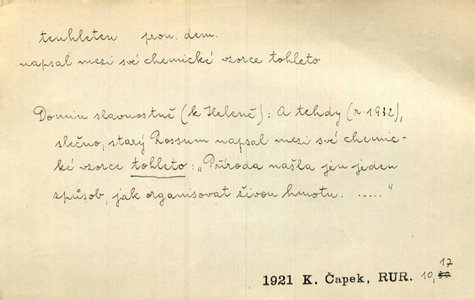 tenhleten pron. dem.
napsal mezi své chemické vzorce tohleto
Domin slavnostně (k Heleně): A tehdy (r. 1932),
slečno, starý Rossum napsal mezi své chemic-
ké vzorce tohleto: „Příroda našla jen jeden
způsob, jak organisovat živou hmotu. ....."
1921 K. Čapek, RUR. 10, 17